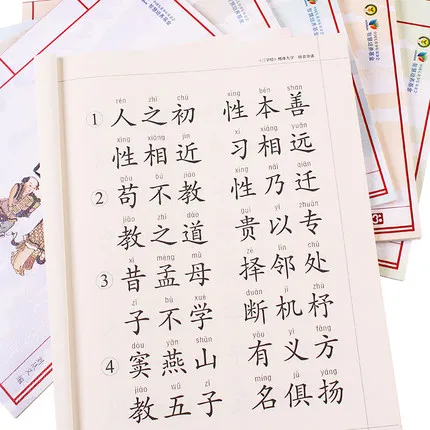 《三字经》
rén zhī chū xìng běn shàn
①人之初 性本善
xìng xiāng jìn xí xiāng yuǎn
性相近 习相远
gǒu bú jiào xìng nǎi qiān
②苟不教 性乃迁
jiào zhī dào guì yǐ zhuān
教之道 贵以专
xī mèng mǔ zé lín chǔ
③昔孟母 择邻处
zǐ bù xué duàn jī zhù
子不学 断机杼
dòu yān shān yǒu yì fāng
④窦燕山 有义方
jiào wǔ zǐ míng jù yáng
教五子 名俱扬